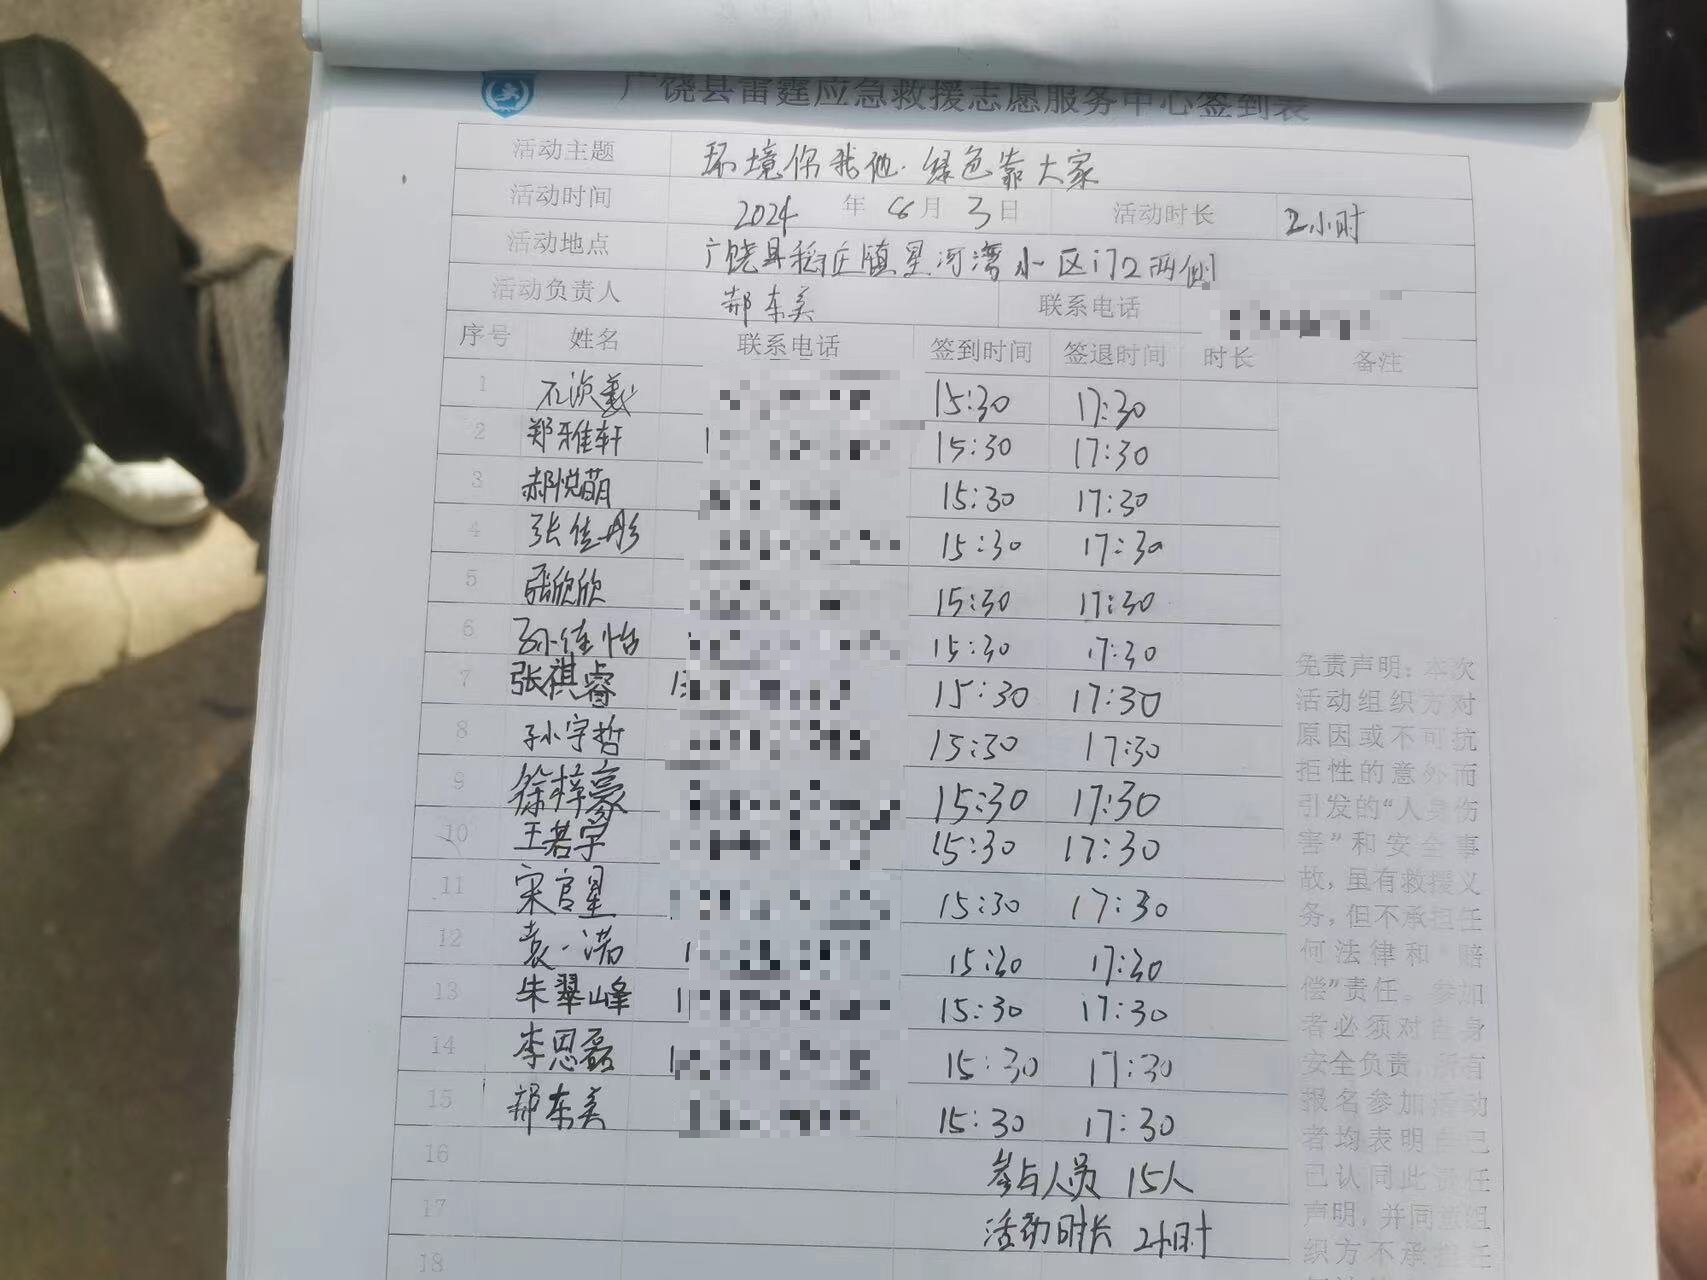 广饶县雷霆应急救援志愿服务中心签到表
活动主题 环境你我他·绿色靠大家
活动时间 2024年6月3日 活动时长 2小时
活动地点 广饶县稻庄镇星河湾小区门口两侧
活动负责人 郝东美 联系电话
序号 姓名 联系电话 签到时间 签退时间 时长 备注
1 石浈羲 15:30 17:30
2 郑雅轩 1 15:30 17:30
3 郝悦萌 15:30 17:30
4 张佳彤 15:30 17:30
5 张欣欣 15:30 17:30
6 孙佳怡 15:30 17:30
7 张祺睿 15:30 17:30
8 孙宇哲 15:30 17:30
9 徐梓豪 15:30 17:30
10 王若宇 15:30 17:30
11 宋官星 15:30 17:30
12 袁一诺 1 15:30 17:30
13 朱翠峰 1 15:30 17:30
14 李恩磊 1 15:30 17:30
15 郝东美 15:30 17:30
16 参与人员 15人
17 活动时长 2小时
18
免责声明：本次
活动组织方对
原因或不可抗
拒性的意外而
引发的“人身伤
害”和安全事
故，虽有救援义
务，但不承担任
何法律和“赔
偿”责任。参加
者必须对自身
安全负责，所有
报名参加活动
者均表明自己
已认同此责任
声明，并同意组
织方不承担任